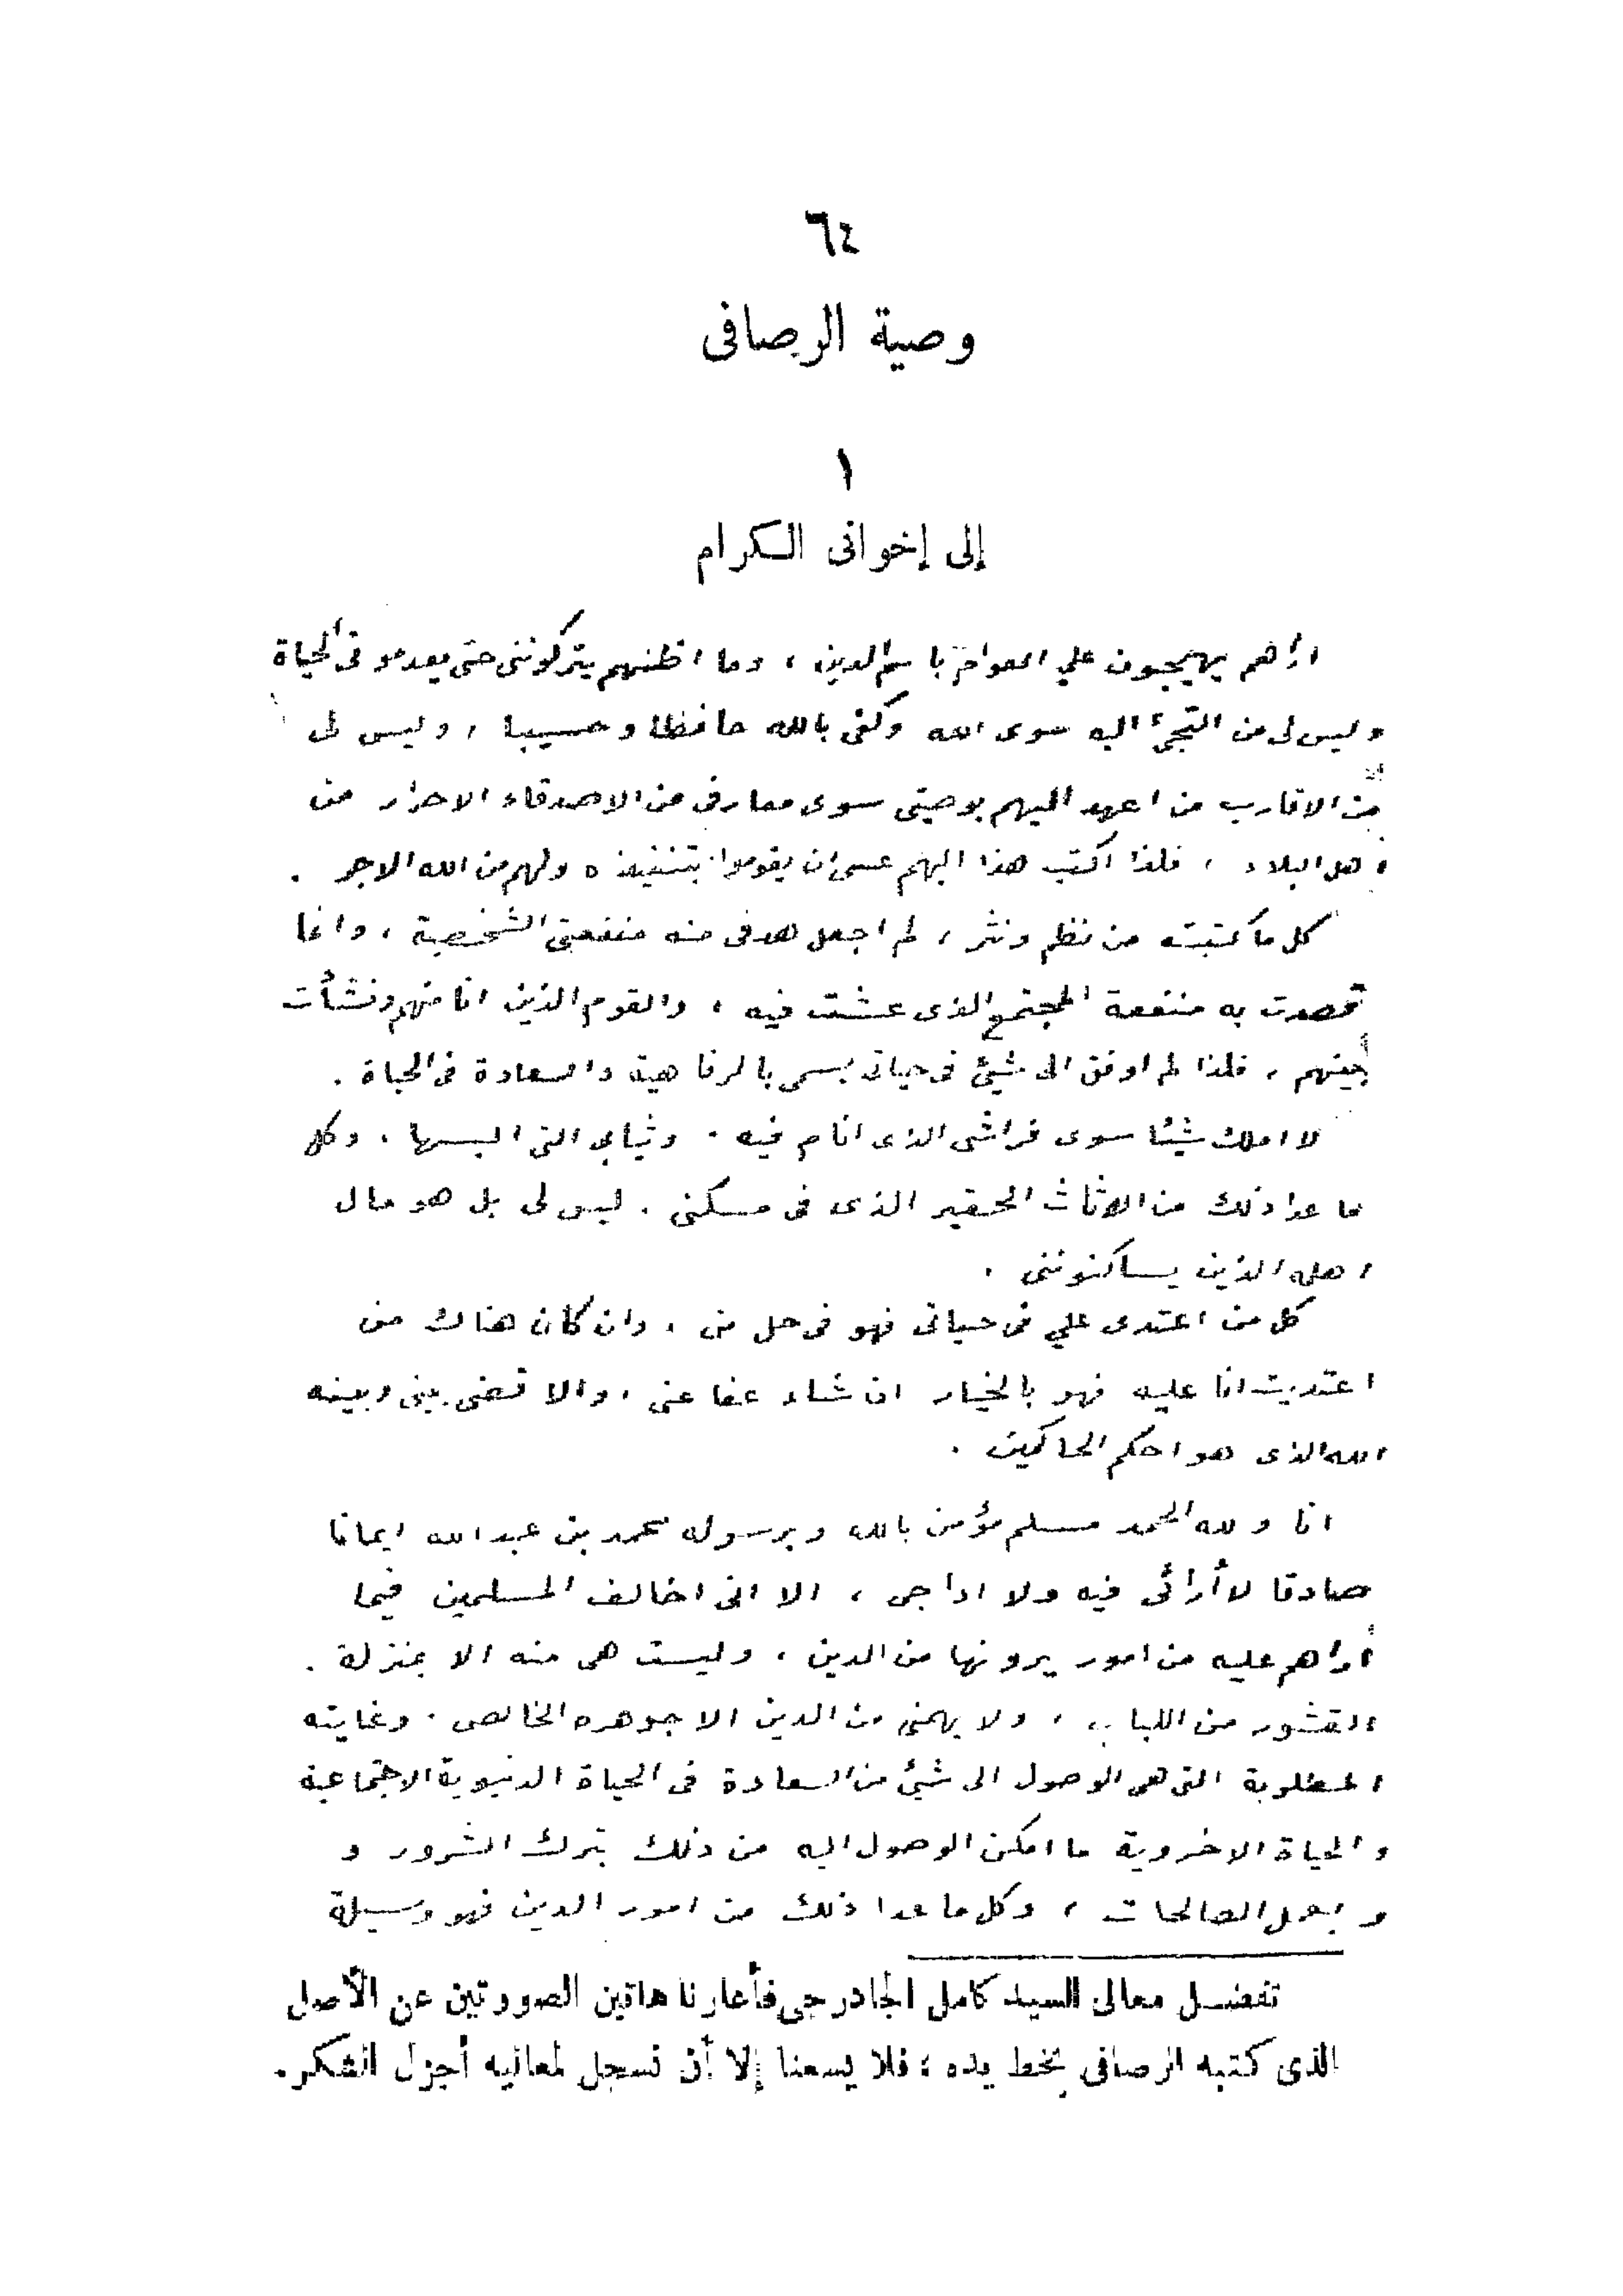 ٦٤
وصية الرصافى
١
إلى إخوانى الكرام
اراهم يهيجون علي العوام باسم الدين ، وما اظنهم يتركوننى حتى يعدمونى الحياة
وليس لى من التجئ اليه سوى الله وكفى بالله حافظا وحسيبا ، وليس لى
من الاقارب من اعهد اليهم بوصيتى سوى معارفى من الاصدقاء الاحرار من
اهل البلاد ، فلذا اكتب هذا اليهم عسى ان يقوموا بتنفيذه ولهم من الله الاجر .
كل ما كتبته من نظم ونثر ، لم اجعل هدفى منه منفعتى الشخصية ، وانما
قصدت به منفعة المجتمع الذى عشت فيه ، والقوم الذين انا منهم ونشأت
بينهم ، فلذا لم اوفق الى شيئ فى حياتى يسمى بالرفاهية والسعادة فى الحياة .
لا املك شيئا سوى فراشى الذى انام فيه . وثيابى التى البسها ، وكل
ما عدا ذلك من الاثاث الحقير الذى فى مسكنى . ليس لى بل هو مال
اهله الذين يساكنوننى .
كل من اعتدى علي فى حياتى فهو فى حل منى . وان كان هناك من
اعتديت انا عليه فهو بالخيار ان شاء عفا عنى ، والا قضى بينى وبينه
الله الذى هو احكم الحاكمين .
انا ولله الحمد مسلم مؤمن بالله وبرسوله محمد بن عبدالله ايمانا
صادقا لا أرائى فيه ولا اداجى ، الا انى اخالف المسلمين فيما
أراهم عليه من امور يرونها من الدين ، وليست هى منه الا بمنزلة .
القشور من اللباب ، ولا يهمنى من الدين الا جوهره الخالص . وغايته
المطلوبة التى هى الوصول الى شيئ من السعادة فى الحياة الدنيوية الاجتماعية
والحياة الاخروية ما امكن الوصول اليه من ذلك بترك الشرور و
وبعمل الصالحات ، وكل ما عدا ذلك من امور الدين فهو وسيلة
تفضل معالى السيد كامل الجادرجى فأعارنا هاتين الصورتين عن الأصل
الذى كتبه الرصافى بخط يده ؛ فلا يسعنا إلا أن نسجل لمعاليه أجزل الشكر.